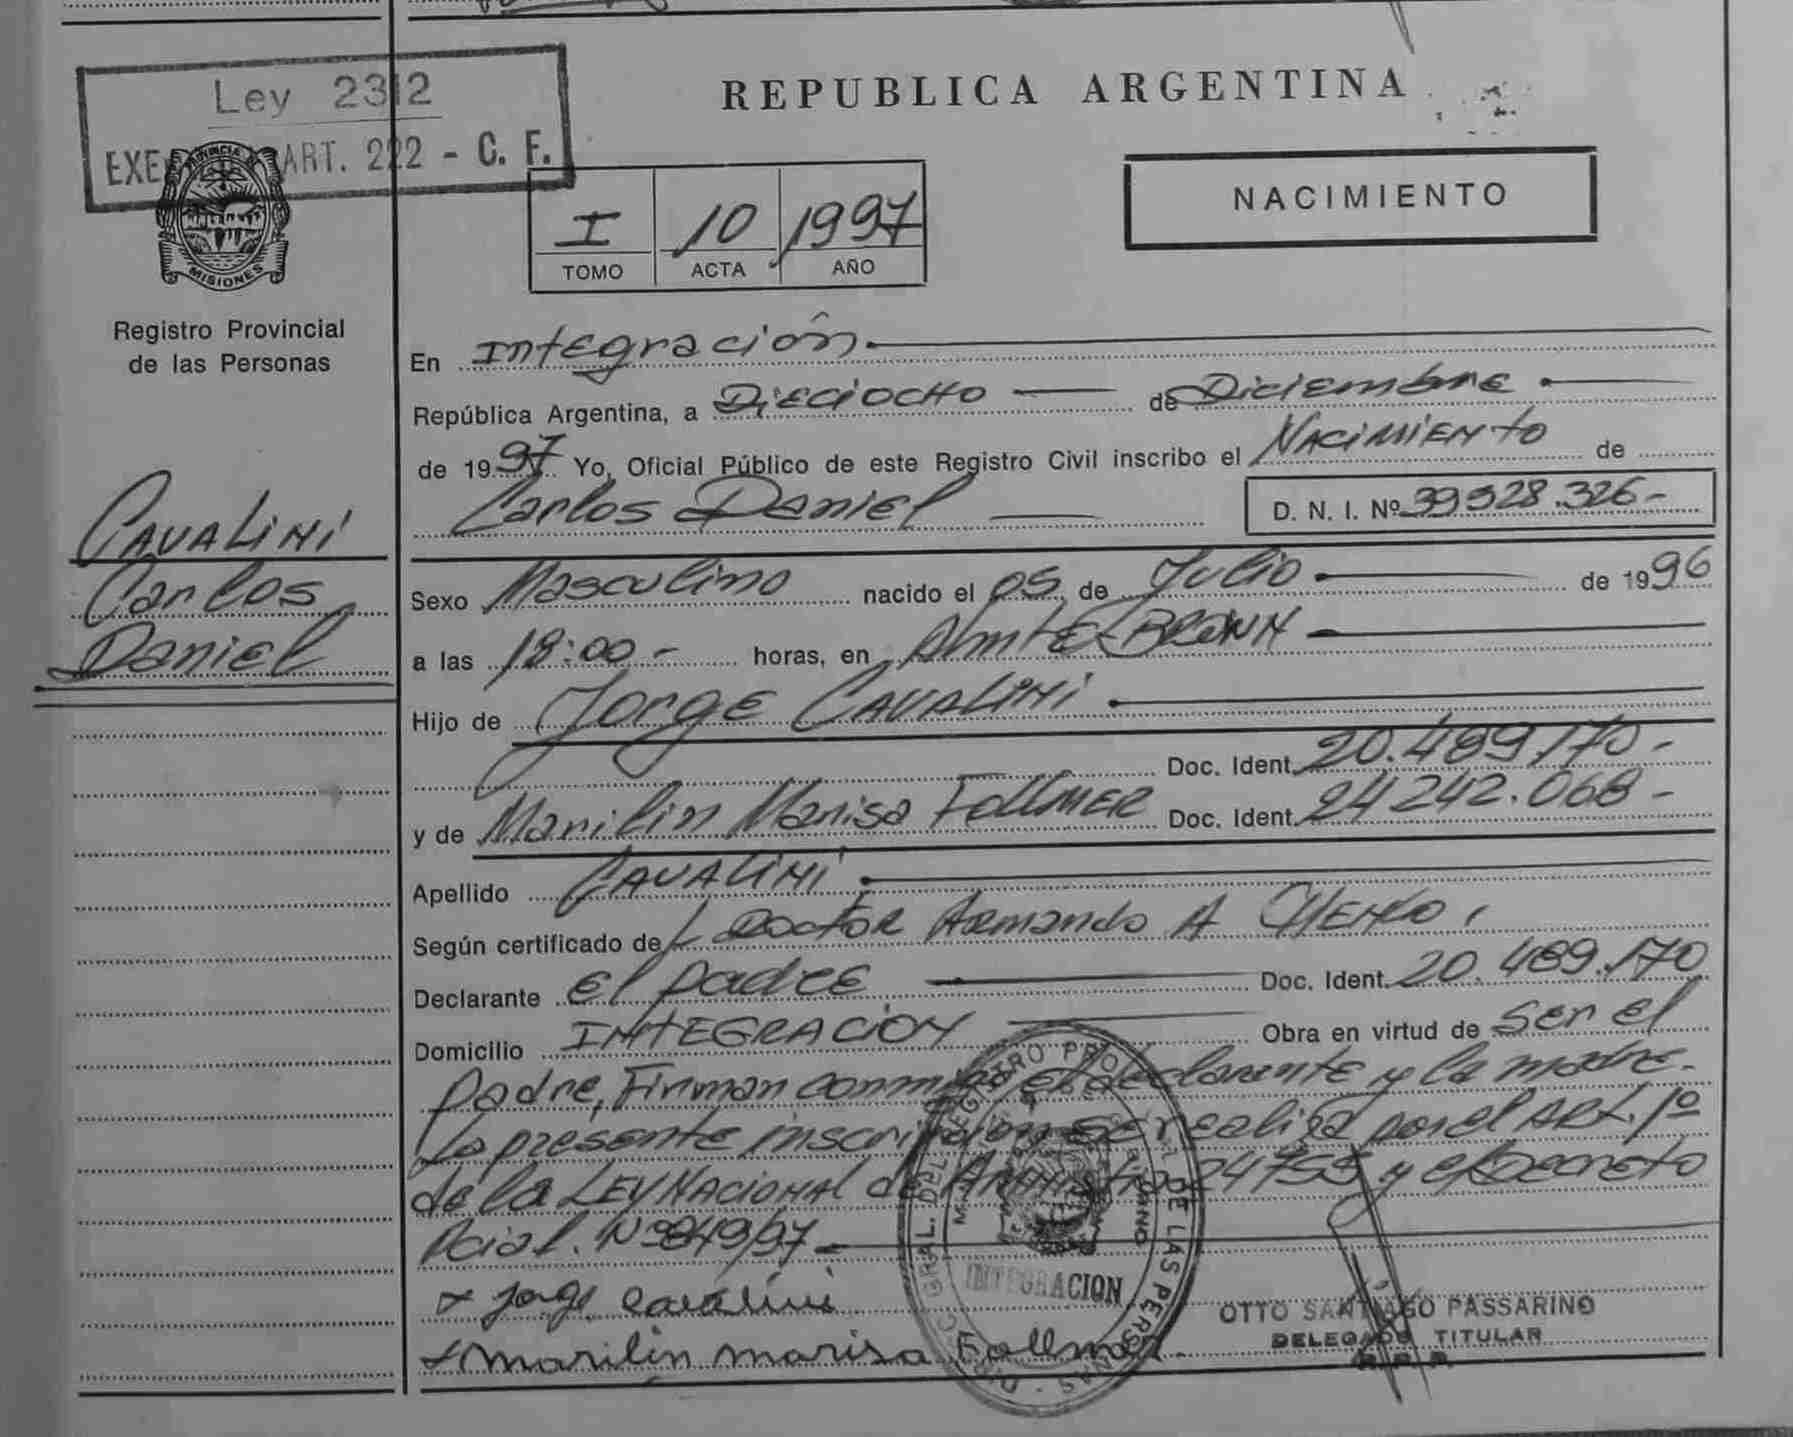 Ley 2312
EXE ART. 222 - C. F.
PROVINCIA DE
MISIONES
Registro Provincial
de las Personas
CAVALINI
Carlos
Daniel
REPUBLICA ARGENTINA
NACIMIENTO
I 10 1997
TOMO ACTA AÑO
En Integración
República Argentina, a Dieciocho de Diciembre
de 1997 Yo, Oficial Público de este Registro Civil inscribo el Nacimiento de
Carlos Daniel D. N. I. Nº 39.528.326-
Sexo Masculino nacido el 05 de Julio de 1996
a las 18:00 - horas, en Almte BROWN
Hijo de Jorge CAVALINI
Doc. Ident. 20.489.170-
y de Marilin Marisa Follmer Doc. Ident. 24.242.068-
Apellido CAVALINI
Según certificado del Doctor Armando A
Declarante El padre Doc. Ident. 20.489.170
Domicilio INTEGRACION Obra en virtud de ser el
padre, Firman conmigo el declarante y la madre.
La presente inscripción se realiza por el ART. 1º
de la LEY NACIONAL de Amnistía 24755 y el Decreto
Pcial. Nº 849/97
x Jorge Cavalini
x marilin marisa Follmer
REGISTRO PROV. DE LAS PERSONAS
INTEGRACION
OTTO SANTIAGO PASSARINO
DELEGADO TITULAR